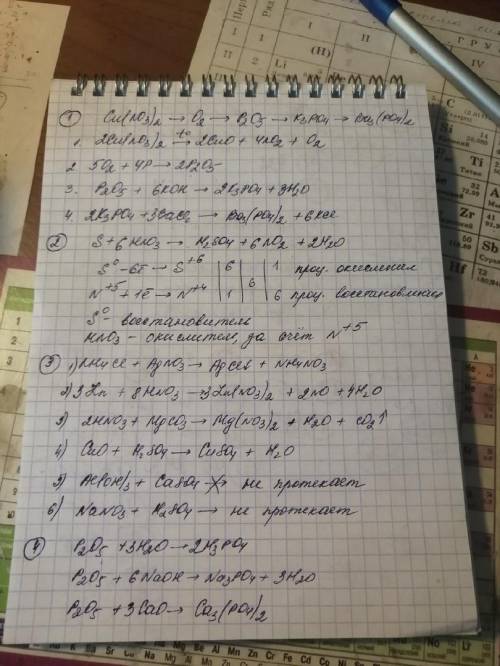 ① Cu(NO₃)₂ → O₂ → P₂O₅ → K₃PO₄ → Ba₃(PO₄)₂
1. 2Cu(NO₃)₂ t°→ 2CuO + 4NO₂ + O₂
2. 5O₂ + 4P → 2P₂O₅
3. P₂O₅ + 6KOH → 2K₃PO₄ + 3H₂O
4. 2K₃PO₄ + 3BaCl₂ → Ba₃(PO₄)₂ + 6KCl
② S + 6HNO₃ → H₂SO₄ + 6NO₂ + 2H₂O
S⁰ - 6ē → S⁺⁶ | 6 | | 1 проц. окисления
6
N⁺⁵ + 1ē → N⁺⁴ | 1 | | 6 проц. восстановления
S⁰ - восстановитель
HNO₃ - окислитель, за счёт N⁺⁵
③ 1) NH₄Cl + AgNO₃ → AgCl↓ + NH₄NO₃
2) 3Zn + 8HNO₃ → 3Zn(NO₃)₂ + 2NO + 4H₂O
3) 2HNO₃ + MgCO₃ → Mg(NO₃)₂ + H₂O + CO₂↑
4) CuO + H₂SO₄ → CuSO₄ + H₂O
5) Al(OH)₃ + CaSO₄ → не протекает
6) NaNO₃ + H₂SO₄ → не протекает
④ P₂O₅ + 3H₂O → 2H₃PO₄
P₂O₅ + 6NaOH → Na₃PO₄ + 3H₂O
P₂O₅ + 3CaO → Ca₃(PO₄)₂
I
II
IV
(H)
Li
C
Si
Ti
Zr
Hf
K Ba Sr Ca Na Mg Al